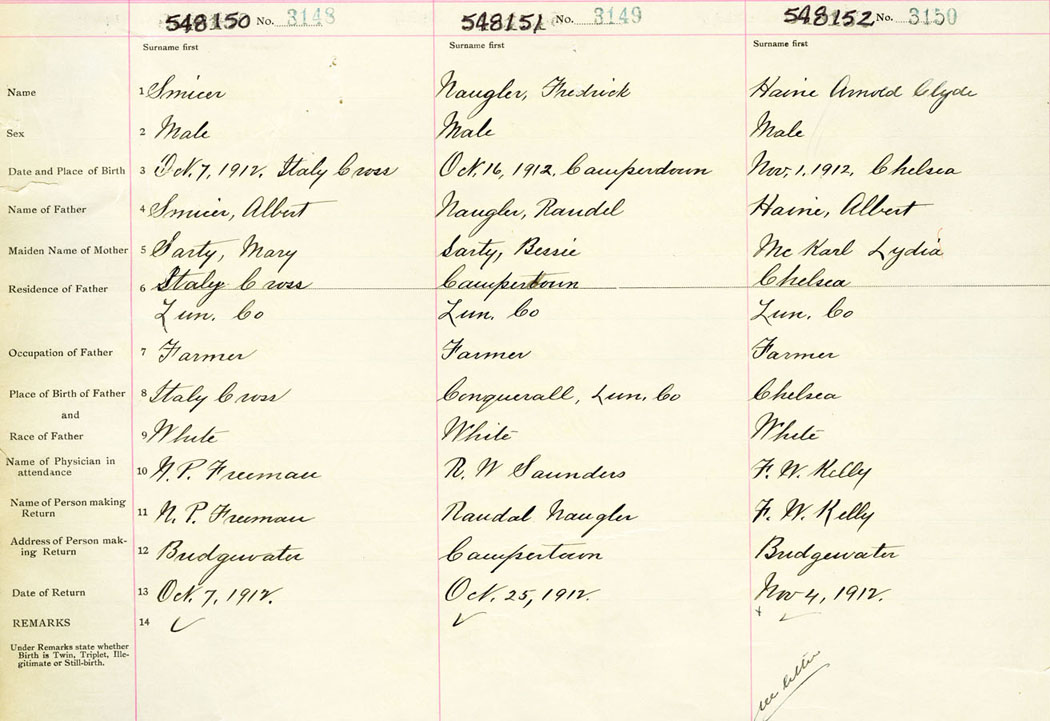 548150 No. 3148 548151 No. 3149 548152 No. 3150
Surname first Surname first Surname first
Name 1 Smicer Naugler, Fredrick Haine Arnold Clyde
Sex 2 Male Male Male
Date and Place of Birth 3 Oct. 7, 1912. Italy Cross Oct. 16, 1912. Camperdown Nov. 1. 1912. Chelsea
Name of Father 4 Smicer, Albert Naugler, Randel Haine, Albert
Maiden Name of Mother 5 Sarty, Mary Sarty, Bessie Mc Karl Lydia
Residence of Father 6 Italy Cross Campertown Chelsea
Lun. Co Lun. Co Lun. Co
Occupation of Father 7 Farmer Farmer Farmer
Place of Birth of Father 8 Italy Cross Conquerall, Lun. Co Chelsea
and
Race of Father 9 White White White
Name of Physician in
attendance 10 N. P. Freeman R. W Saunders F. W. Kelly
Name of Person making
Return 11 N. P. Freeman Randal Naugler F. W. Kelly
Address of Person mak-
ing Return 12 Bridgewater Campertown Bridgewater
Date of Return 13 Oct. 7, 1912. Oct. 25, 1912. Nov 4, 1912.
REMARKS 14
Under Remarks state whether
Birth is Twin, Triplet, Ille-
gitimate or Still-birth.
see letter